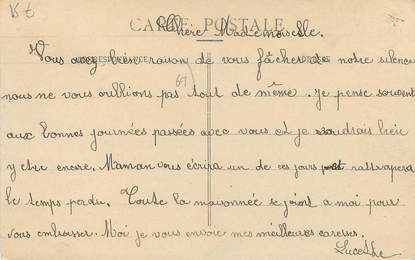 Bt
CARTE POSTALE
Chère Mademoiselle.
CORRESPONDANCE ADRESSE
Vous avez bien raison de vous fâcher de notre silence
69
nous ne vous oublions pas tout de même. Je pense souvent
aux bonnes journées passées avec vous et je voudrais bien
y etre encore. Maman vous écrira un de ces jours et rattrapera
le temps perdu. Toute la maisonnée se joint a moi pour
vous embrasser. Moi je vous envoie mes meilleures caresses.
Lucette